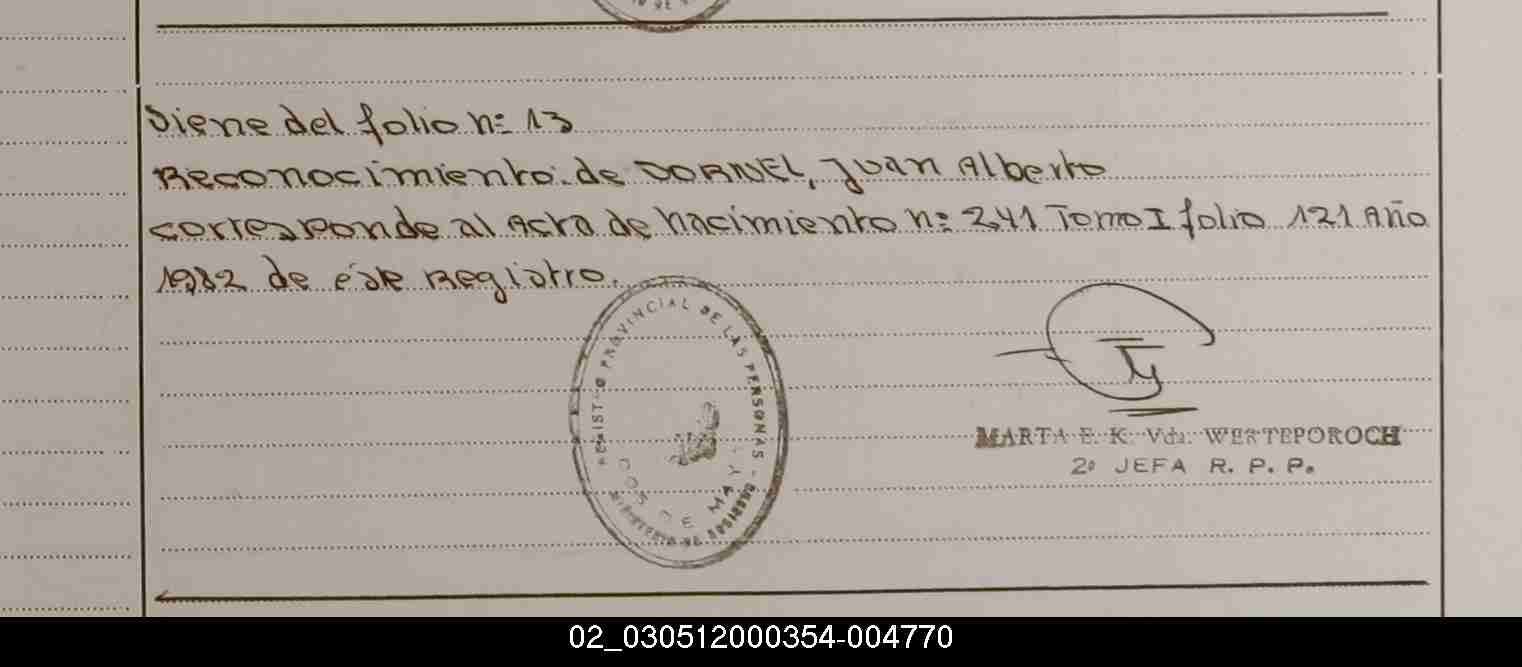 Viene del folio nº 13
Reconocimiento de DORNEL, Juan Alberto
corresponde al Acta de nacimiento nº 241 Tomo I folio 121 Año
1982 de éste Registro.
REGISTRO PROVINCIAL DE LAS PERSONAS -
DOS DE MAY
MINISTERIO DE GOBIERNO
MARTA E. K. Vda. WERTEPOROCH
2º JEFA R. P. P.
02_030512000354-004770